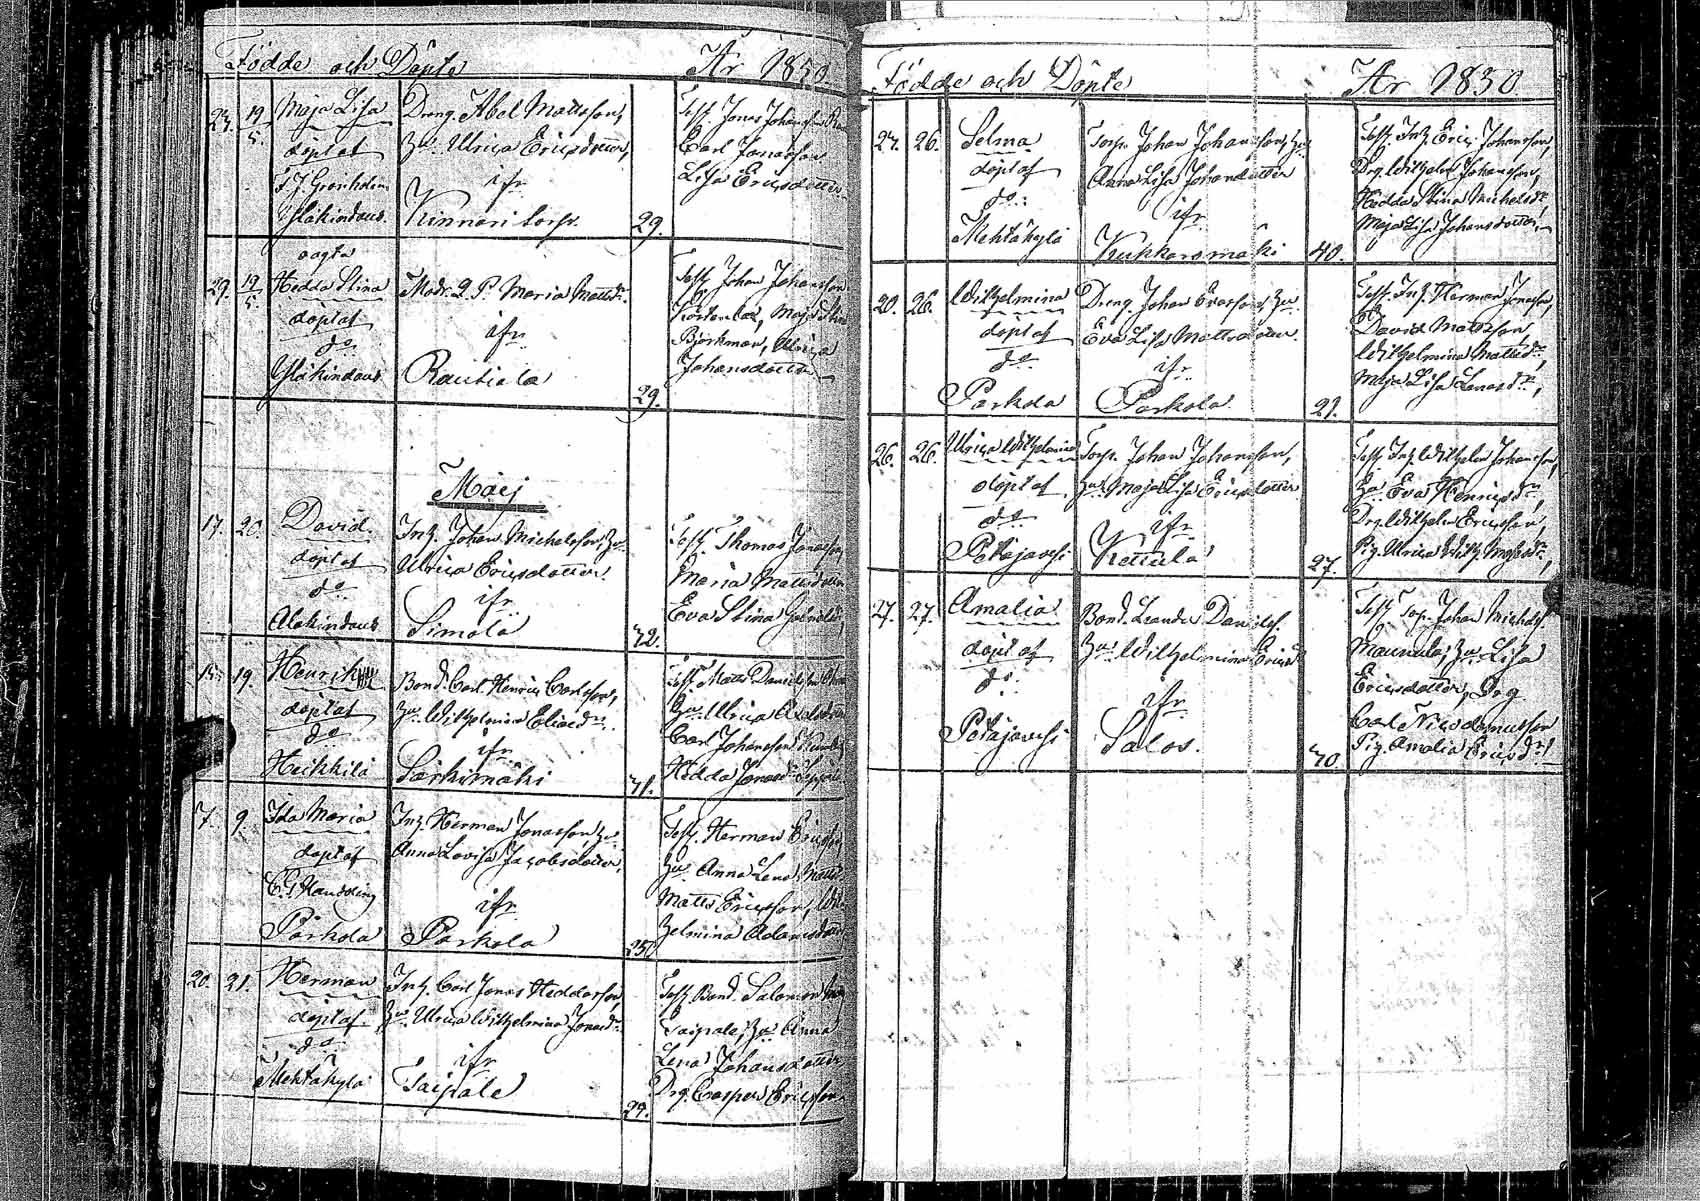 Födde och Döpte År 1850.
23. 19/5. Maja Lisa
döpt af
F J Grönholm
Yläkindaus
Dreng Abel Mattsson,
Hu. Ulrica Ericsdotter,
ifr
Kinnari torp.
29.
Test. Jonas Johansson
Carl Jonasson
Lisa Ericsdotter
oägta
29. 19/5. Hedda Stina
döpt af
do
Yläkindaus
Maria Mattsdr.
ifr
Rautiala
29.
Test. Johan Johansson
Maja Stina
Björkman, Ulrica
Johansdotter
Maij
17. 20. David
döpt af
do
Alakindaus
Inh. Johan Michelsson, hu
Ulrica Ericsdotter.
ifr
Simola
42.
Test. Thomas Jonasson,
Maria Mattsdotter
Eva Stina
15. 19. Henrik
döpt af
do
Heikkilä
Bond. Carl Henric Carlsson,
hu Wilhelmina Eliaedr.
ifr
Särkimäki
41.
Test. Matts Danielsson
hu Ulrica
Carl Johansson
Hedda Jonaedr
7. 9. Ida Maria
döpt af
Parkola
Inh. Herman Jonasson, hu
Anna Lovisa Jacobsdotter,
ifr
Parkola
250
Test. Herman Ericsson
hu Anna Lena
Matts Ericsson, Wil
helmina Adamsdotter
20. 21. Herman
döpt af
do
Mehtäkylä
Inh. Carl Jonas Heddasson
hu Ulrica Wilhelmina Jonaedr.
ifr
Taipale
29.
Test. Bond. Salomon
Taipale, hu Anna
Lena Johansdotter
Drg. Casper Ericsson
Födde och Döpte År 1850
23. 26. Selma
döpt af
do:
Mehtäkylä
Torp. Johan Johansson, hu
Anna Lisa Johansdotter
ifr
Kukkaromäki
40.
Test. Inh. Eric Johansson,
Drg. Wilhelm Johansson,
Hedda Stina Michelsdr,
Maja Lisa Johansdotter.
20. 26. Wilhelmina
döpt af
do
Parkola
Dreng Johan Evasson, hu
Eva Lisa Mattsdotter.
ifr
Parkola.
21.
Test. Inh. Herman Jonasson,
David Mattsson,
Wilhelmina Mattsdr,
Maja Lisa Lenasdr,
26. 26. Ulrica Wilhelmina
döpt af
do
Potäjävesi
Torp. Johan Johansson,
hu Maja Lisa Ericsdotter
ifr
Kettula
27.
Test. Inh. Wilhelm Johansson,
hu Eva Henricsdr,
Drg. Wilhelm Ericsson,
Pig. Ulrica Wilh.
27. 27. Amalia
döpt af
do
Potäjävesi
Bond. Leander Daniels.
hu Wilhelmina Ericsdr
ifr
Salos.
40.
Test. Torp. Johan Michelss.
Maunula, hu Lisa
Ericsdotter, Drg
Carl Nicodemusson
Pig. Amalia Ericsdr.